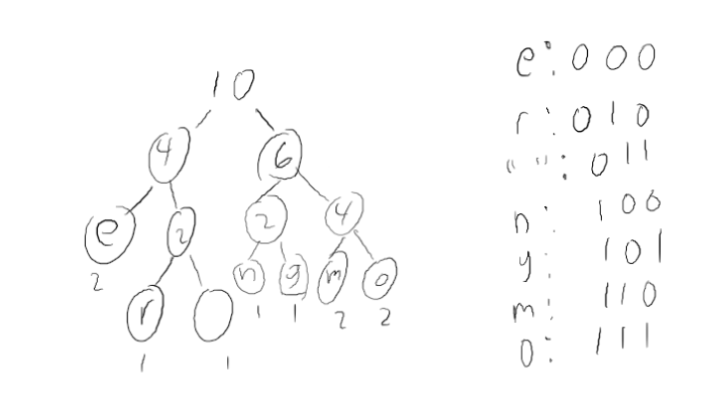 10
4 6
e 2 2 4
2
n y m o
r
1 1 2 2
1 1
e: 000
r: 010
" ": 011
n: 100
y: 101
m: 110
o: 111